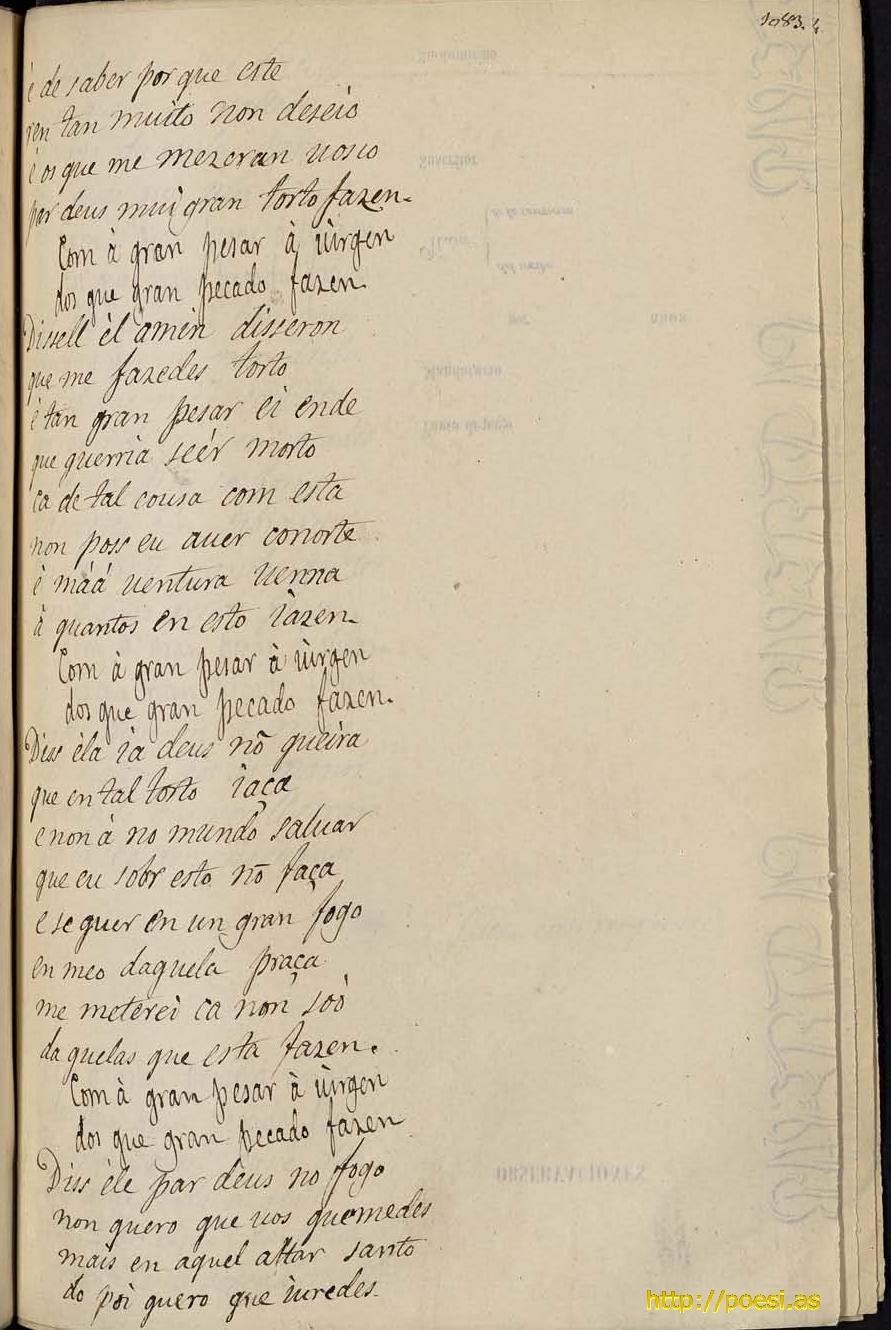 1083. 4
é de saber por que este
ren tan muito non deseio
é os que me mezcran uosco
par deus muì gran torto fazen.
Com à gran pesar à ùirgen
dos que gran pecado fazen.
Dissell èl amen disseron
que me fazedes torto
é tan gran pesar ei ende
que querria seér morto
ca de tal cousa com esta
non poss eu auer conorte
é máá uentura uenna
à quantos en esto iàzen.
Com à gran pesar à ùirgen
dos que gran pecado fazen.
Diss èla ia deus nō queira
que en tal torto iaça
e non á no mundo saluar
que eu sobr esto nō faça
e se quer en un gran fogo
en meo daquela praça
me meterei ca non soò
da quelas que esta fazen.
Com à gran pesar à ùirgen
dos que gran pecado fazen
Diss éle par deus no fogo
non quero que uos queimedes
mais en aquel altar santo
do poi quero que iuredes.
OBSERVACIONES
http://poesi.as